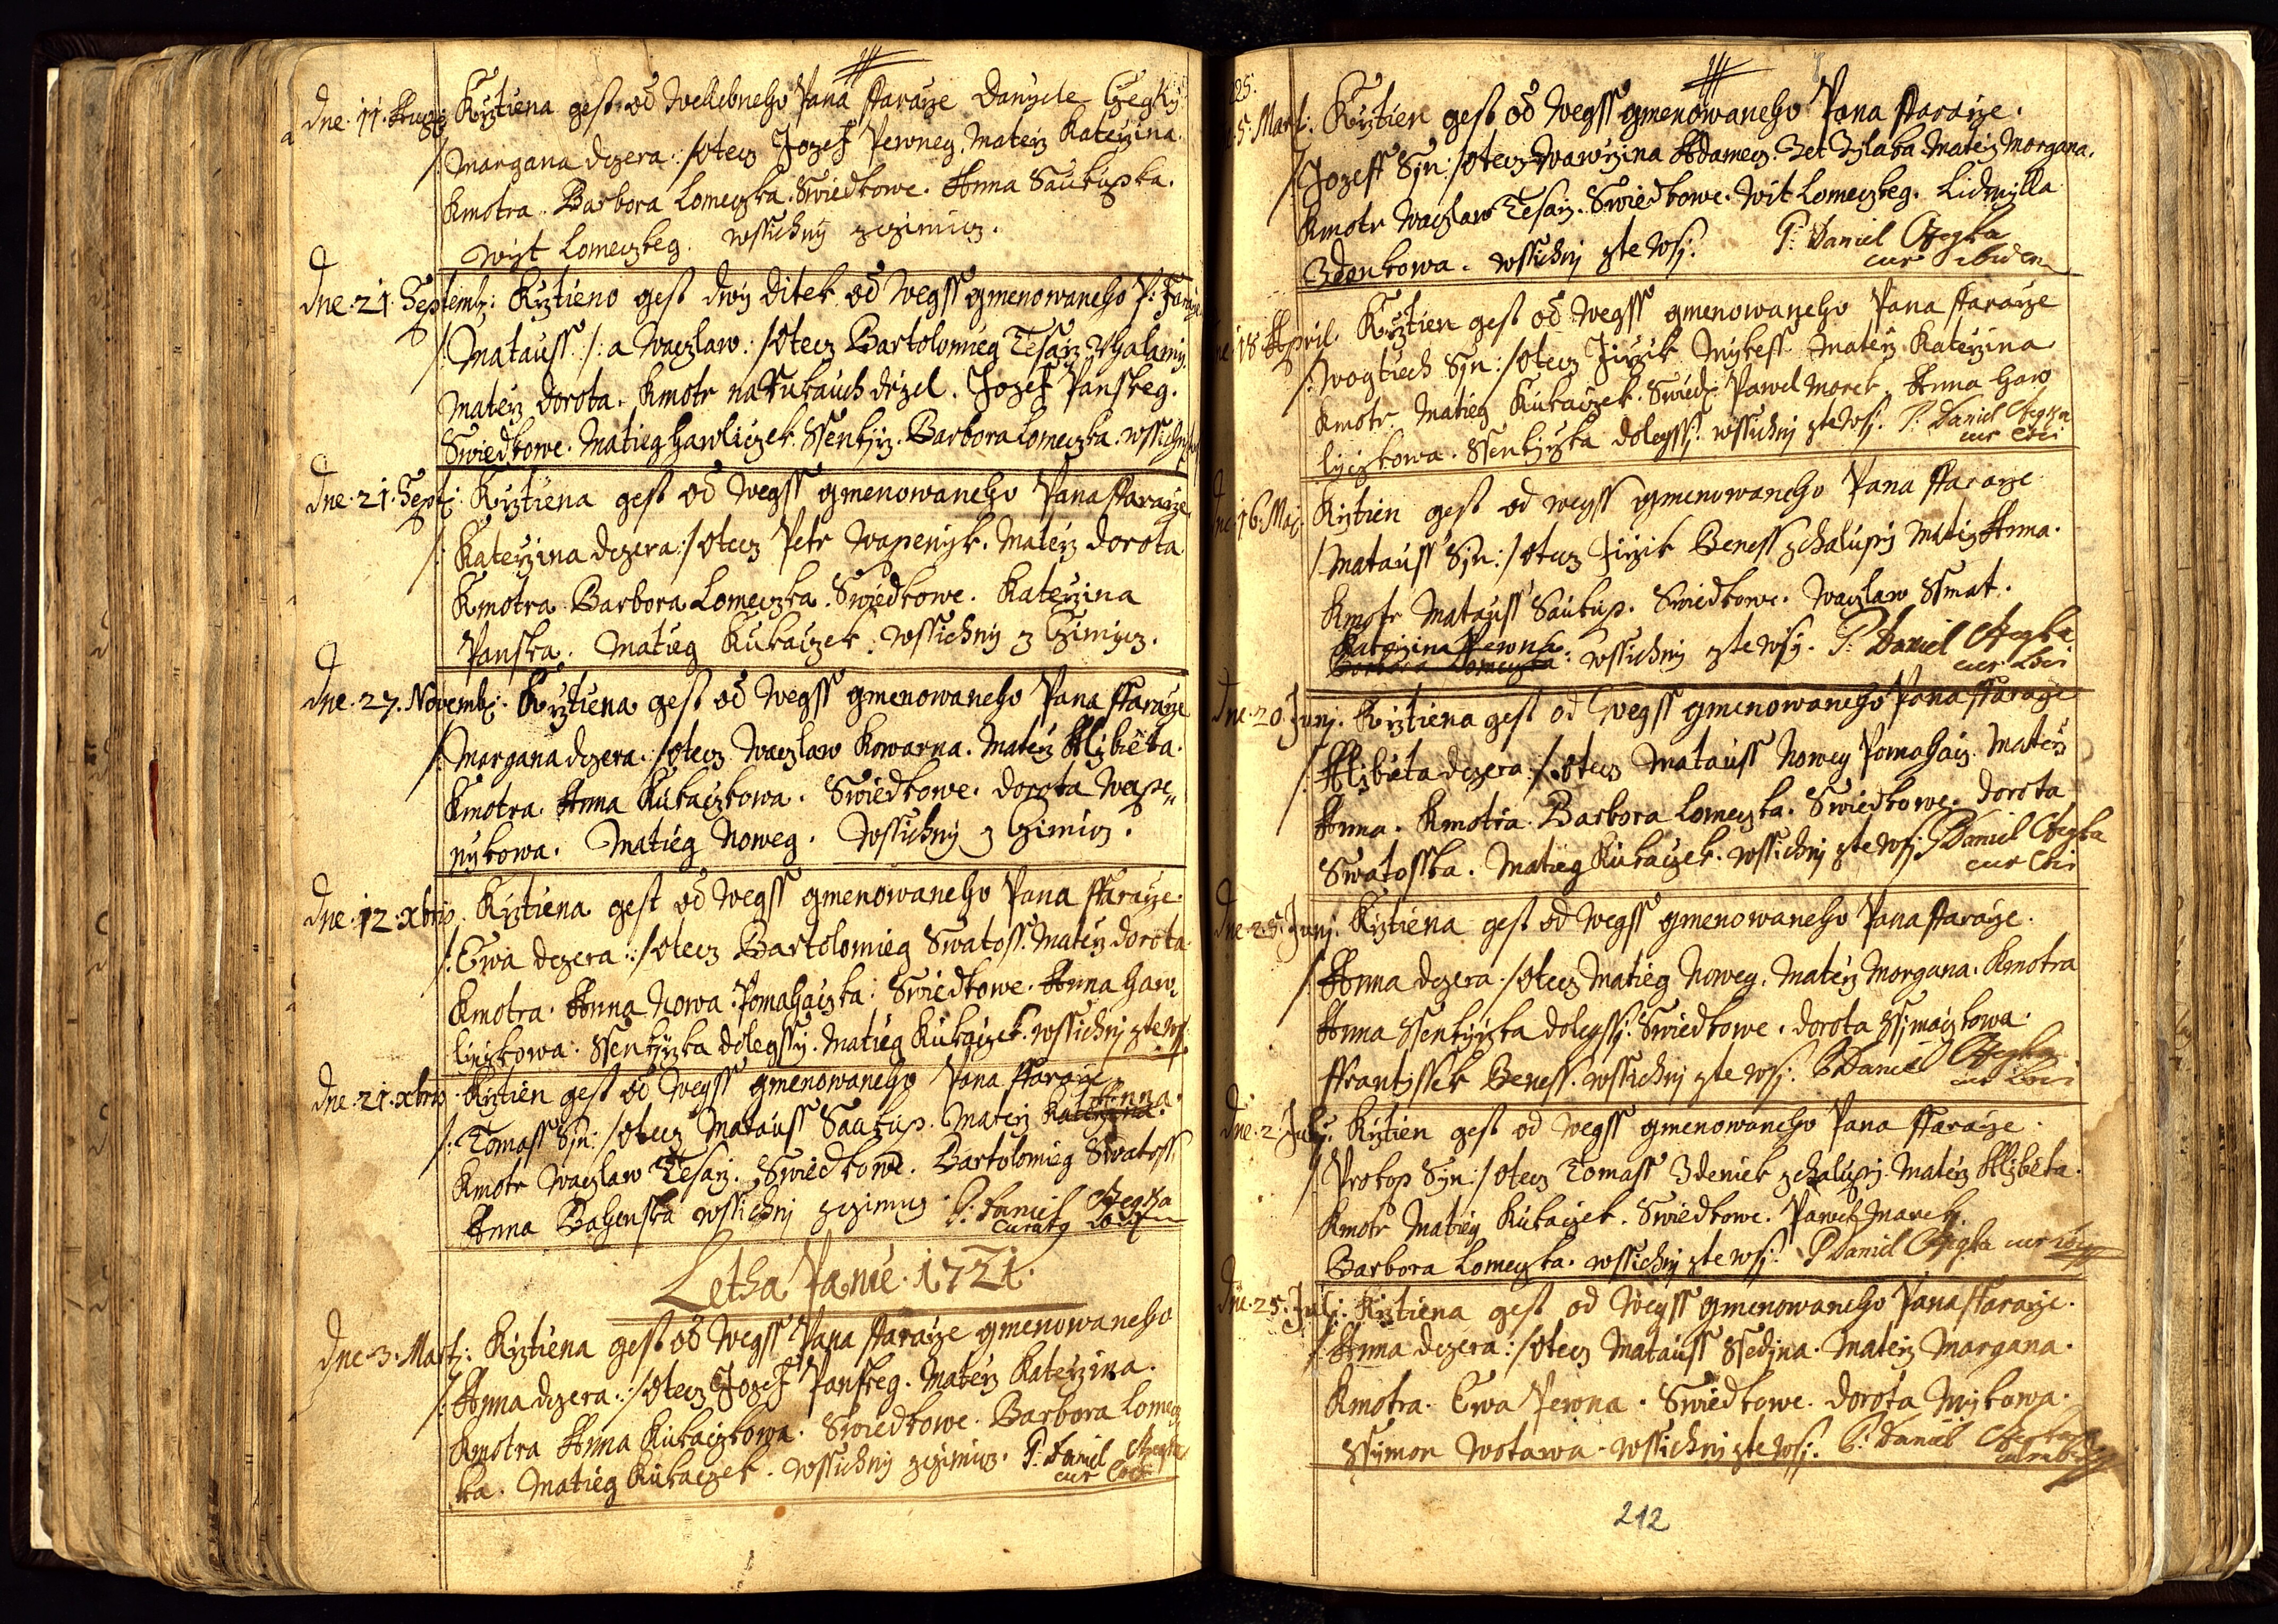 dne. 11. Augu: Krztiena gest od Wellebneho Pana ffaraze Danyele Czegky
/: Margana dczera :/ Otecz Jozef Pewney. Matérz Katerzina.
Kmotra. Barbora Lomeczka. Swiedkowe. Anna Saukupka.
Wyt Lomeczkeg. wssichny zczimicz.
dne. 21. Septemb: Krztieno gest dwy ditek od wegss gmenowaneho P: Faraze
/: Matauss :/ a Waczlaw :/ Otecz Bartolomieg Tesarz
Matérz dorota. Kmotr na Rukauch drzel. Jozef Panskeg.
Swiedkowe. Matieg Hawliczek. Ssenkyrz. Barbora Lomeczka. wssichni
dne. 21. Sept: Krztiena gest od wegss gmenowaneho Pana ffaraze
/: Katerzina dczera :/ Otecz Petr Wapenyk. Matérz dorota
Kmotra Barbora Lomeczka. Swiedkowe. Katerzina
Panska. Matieg Kukaczek. wssichny z Czimicz.
dne. 27. Novemb: Krztiena gest od wegss gmenowaneho Pana ffaraze
/: Margana dczera :/ Otecz Waczlaw Kowarna. Matérz Alzbieta.
Kmotra. Anna Kukaczkowa. Swiedkowe. dorota Wape„
nykowa. Matieg Noweg. Wssichny z Czimicz.
dne. 12. xbris. Krztiena gest od wegss gmenowaneho Pana ffaraze.
/: Ewa dczera :/ Otecz Bartolomieg Swatoss. Matérz dorota.
Kmotra. Anna Nowa. Pomahaczka. Swiedkowe. Anna Haw„
liczkowa. Ssenkyrzka dolegssy. Matieg Kukaczek. wssichni zte wsi
dne. 21. xbris. Krztien gest od wegss gmenowaneho Pana ffaraze
Anna.
/: Tomass Syn :/ Otecz Matauss Saukup. Matérz Katerzina.
Kmotr Waczlaw Tesarz. Swiedkowe. Bartolomieg Swatoss
Anna Bahenska wssichny zczimicz. P: Daniel Czegka
Letha Panie. 1721.
dne. 3. Marty: Krztiena gest od wegss Pana ffaraze gmenowaneho
/: Anna dczera :/ Otecz Jozef Panskeg. Matérz Katerzina.
Kmotra Anna Kukaczkowa. Swiedkowe. Barbora Lomecz
ka. Matieg Kukaczek. wssichny zczimicz. P: Daniel Czegka
cur loci
5. Marti: Krztien gest od wegss gmenowaneho Pana ffaraze.
/: Jozeff Syn :/ Otecz Wawrzina Adamecz. Zet Matérz Morgana.
Kmotr Waczlaw Tesarz. Swiedkowe. Wit Lomeczkeg. Lidmilla
Zdenkowa. wssichny zte wsi. P: Daniel Czegka
cur ibidem
18 April. Krztien gest od wegss gmenowaneho Pana ffaraze
/: Wogtiech Syn :/ Otecz Jirzik Mykess Matérz Katerzina
Kmotr. Matieg Kukaczek. Swied: Pawel Marek. Anna Haw
liczkowa. Ssenkyrzka dolegssi. wssichny zte wsi. P: Daniel Czegka
cur loci
16. Maj. Krztien gest od wegss gmenowaneho Pana ffaraze.
/: Matauss Syn :/ Otecz Jirzik Beness zchalupy Matérz Anna.
Kmotr Matauss Saukup. Swiedkowe. Waczlaw Ssmat.
Katerzina Pewna
Barbora Lomeczka. wssichny zte wsy. P: Daniel Czegka
cur loci
dne. 20. Junj. Krztiena gest od wegss gmenowaneho Pana ffaraze
/: Alzbieta dczera :/ Otecz Matauss Nowey Pomahacz. Matérz
Anna. Kmotra. Barbora Lomeczka. Swiedkowe. dorota
Swatosska. Matieg Kukaczek. wssichny zte wsi. P Daniel Czegka
cur loci
dne. 25. Junj. Krztiena gest od wegss gmenowaneho Pana ffaraze.
/: Anna dczera :/ Otecz Matieg Noweg. Matérz Morgana. Kmotra
Anna Ssenkyrzka dolegssi. Swiedkowe. dorota Ssimaczkowa.
ffrantissek Beness. wssichny zte wsi. P: Daniel Czegka
cur loci
dne. 2. July. Krztien gest od wegss gmenowaneho Pana ffaraze.
/: Prokop Syn :/ Otecz Tomass Zdeniek zchalupy. Matérz Alzbieta.
Kmotr Matieg Kukaczek. Swiedkowe. Pawel Marek.
Barbora Lomeczka. wssichny zte wsi. P Daniel Czegka cur loci
dne. 25. Julj. Krztiena gest od wegss gmenowaneho Pana ffaraze.
/: Anna dczera :/ Otecz Matauss Ssedina. Matérz Margana.
Kmotra. Ewa Pewna. Swiedkowe. dorota Mikowa.
Ssymon Wotawa. wssichny zte wsi. P: Daniel Czegka
212